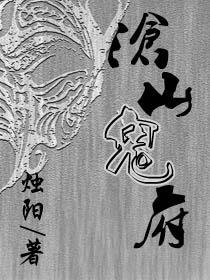 沧山鬼府
烛阳/著